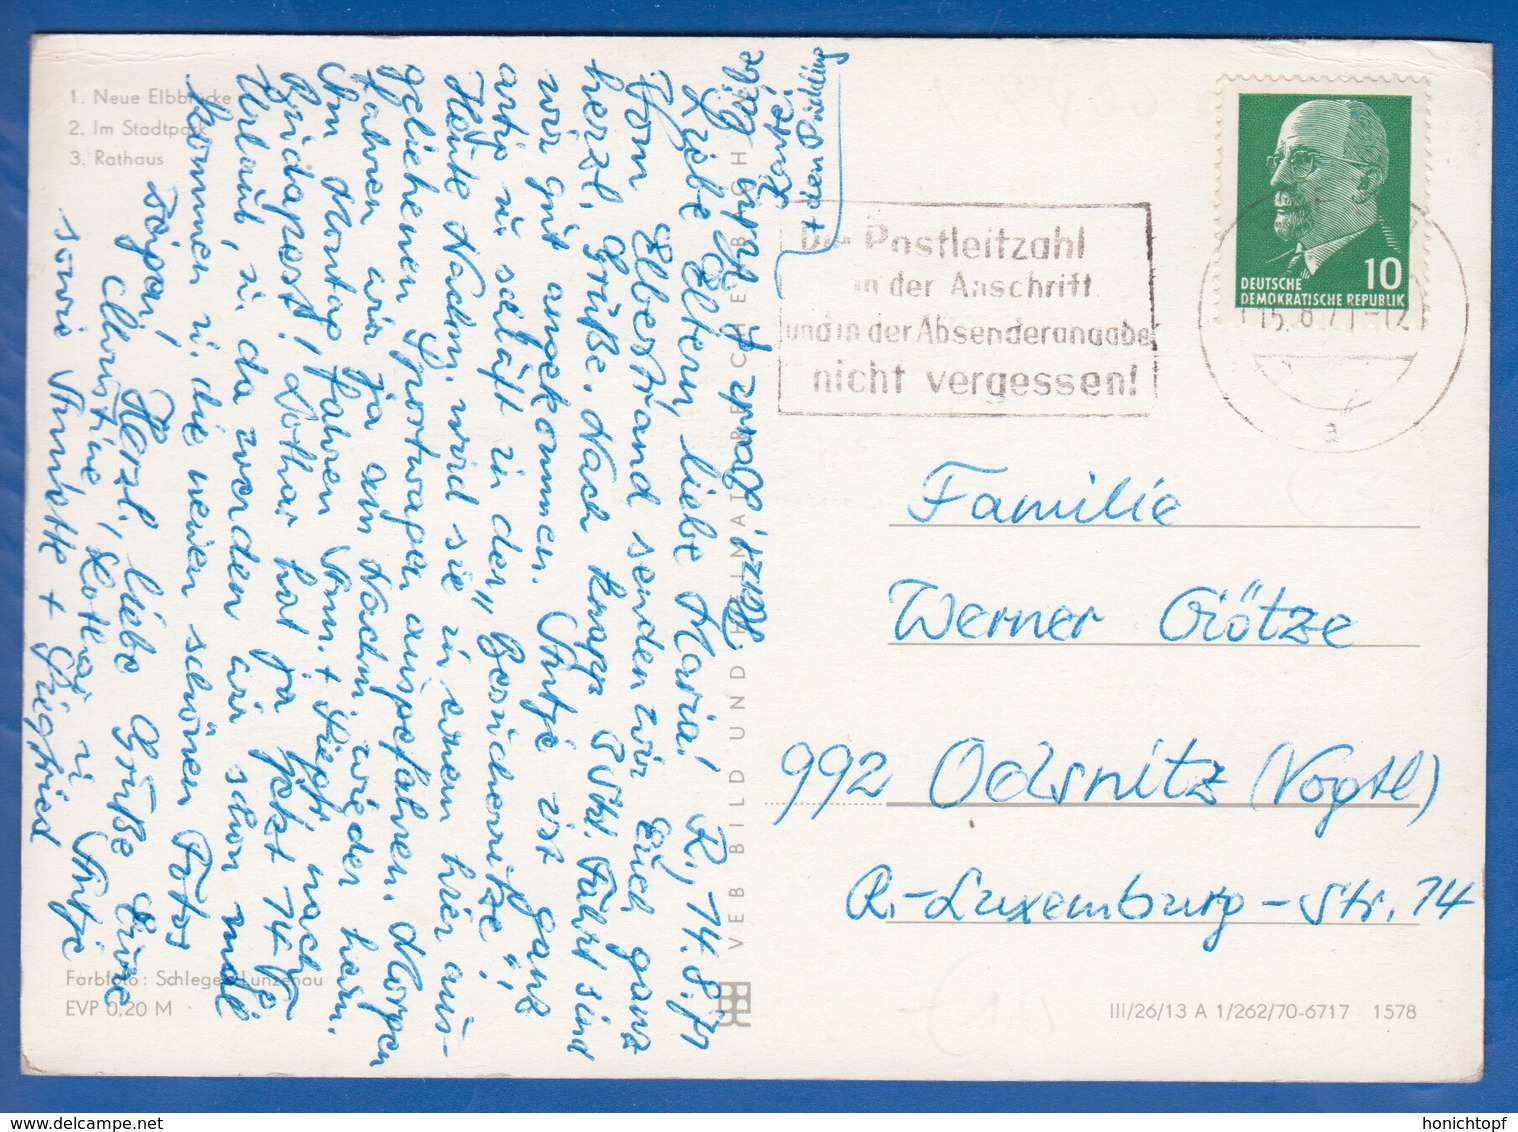 1. Neue Elbbrücke
2. Im Stadtpark
3. Rathaus
R., 14.8.71
Liebe Eltern, liebe Maria!
Vom Elbestrand senden wir Euch ganz
herzl. Grüße. Nach knapp Std. Fahrt sind
wir gut angekommen. Antje ist ganz
artig u. schläft in der „Besucherritze“!
Heute Nachm. wird sie in einem hier aus-
geliehenen Sportwagen ausgefahren. Morgen
fahren wir ja am Nachm. wieder heim.
Am Montag fahren Ann. + Siegfr. nach
Budapest! Lothar hat ja jetzt 14 T.
Urlaub, u. da werden wir schon mal
kommen u. die neuen schönen Fotos
zeigen!
Herzl. liebe Grüße Eure
Christine, Lothar u. Antje
sowie Annette + Siegfried
Liebe
Tante!
+ den Prickling
VEB BILD UND HEIMAT REICHENBACH
Farbfoto: Schlegel, Lunzenau
EVP 0,20 M
Die Postleitzahl
in der Anschrift
und in der Absenderangabe
nicht vergessen!
10
DEUTSCHE
DEMOKRATISCHE REPUBLIK
15.8.71-12
Familie
Werner Götze
992 Oelsnitz (Vogtl)
R.-Luxemburg-Str. 14
III/26/13 A 1/262/70-6717 1578
honichtopf